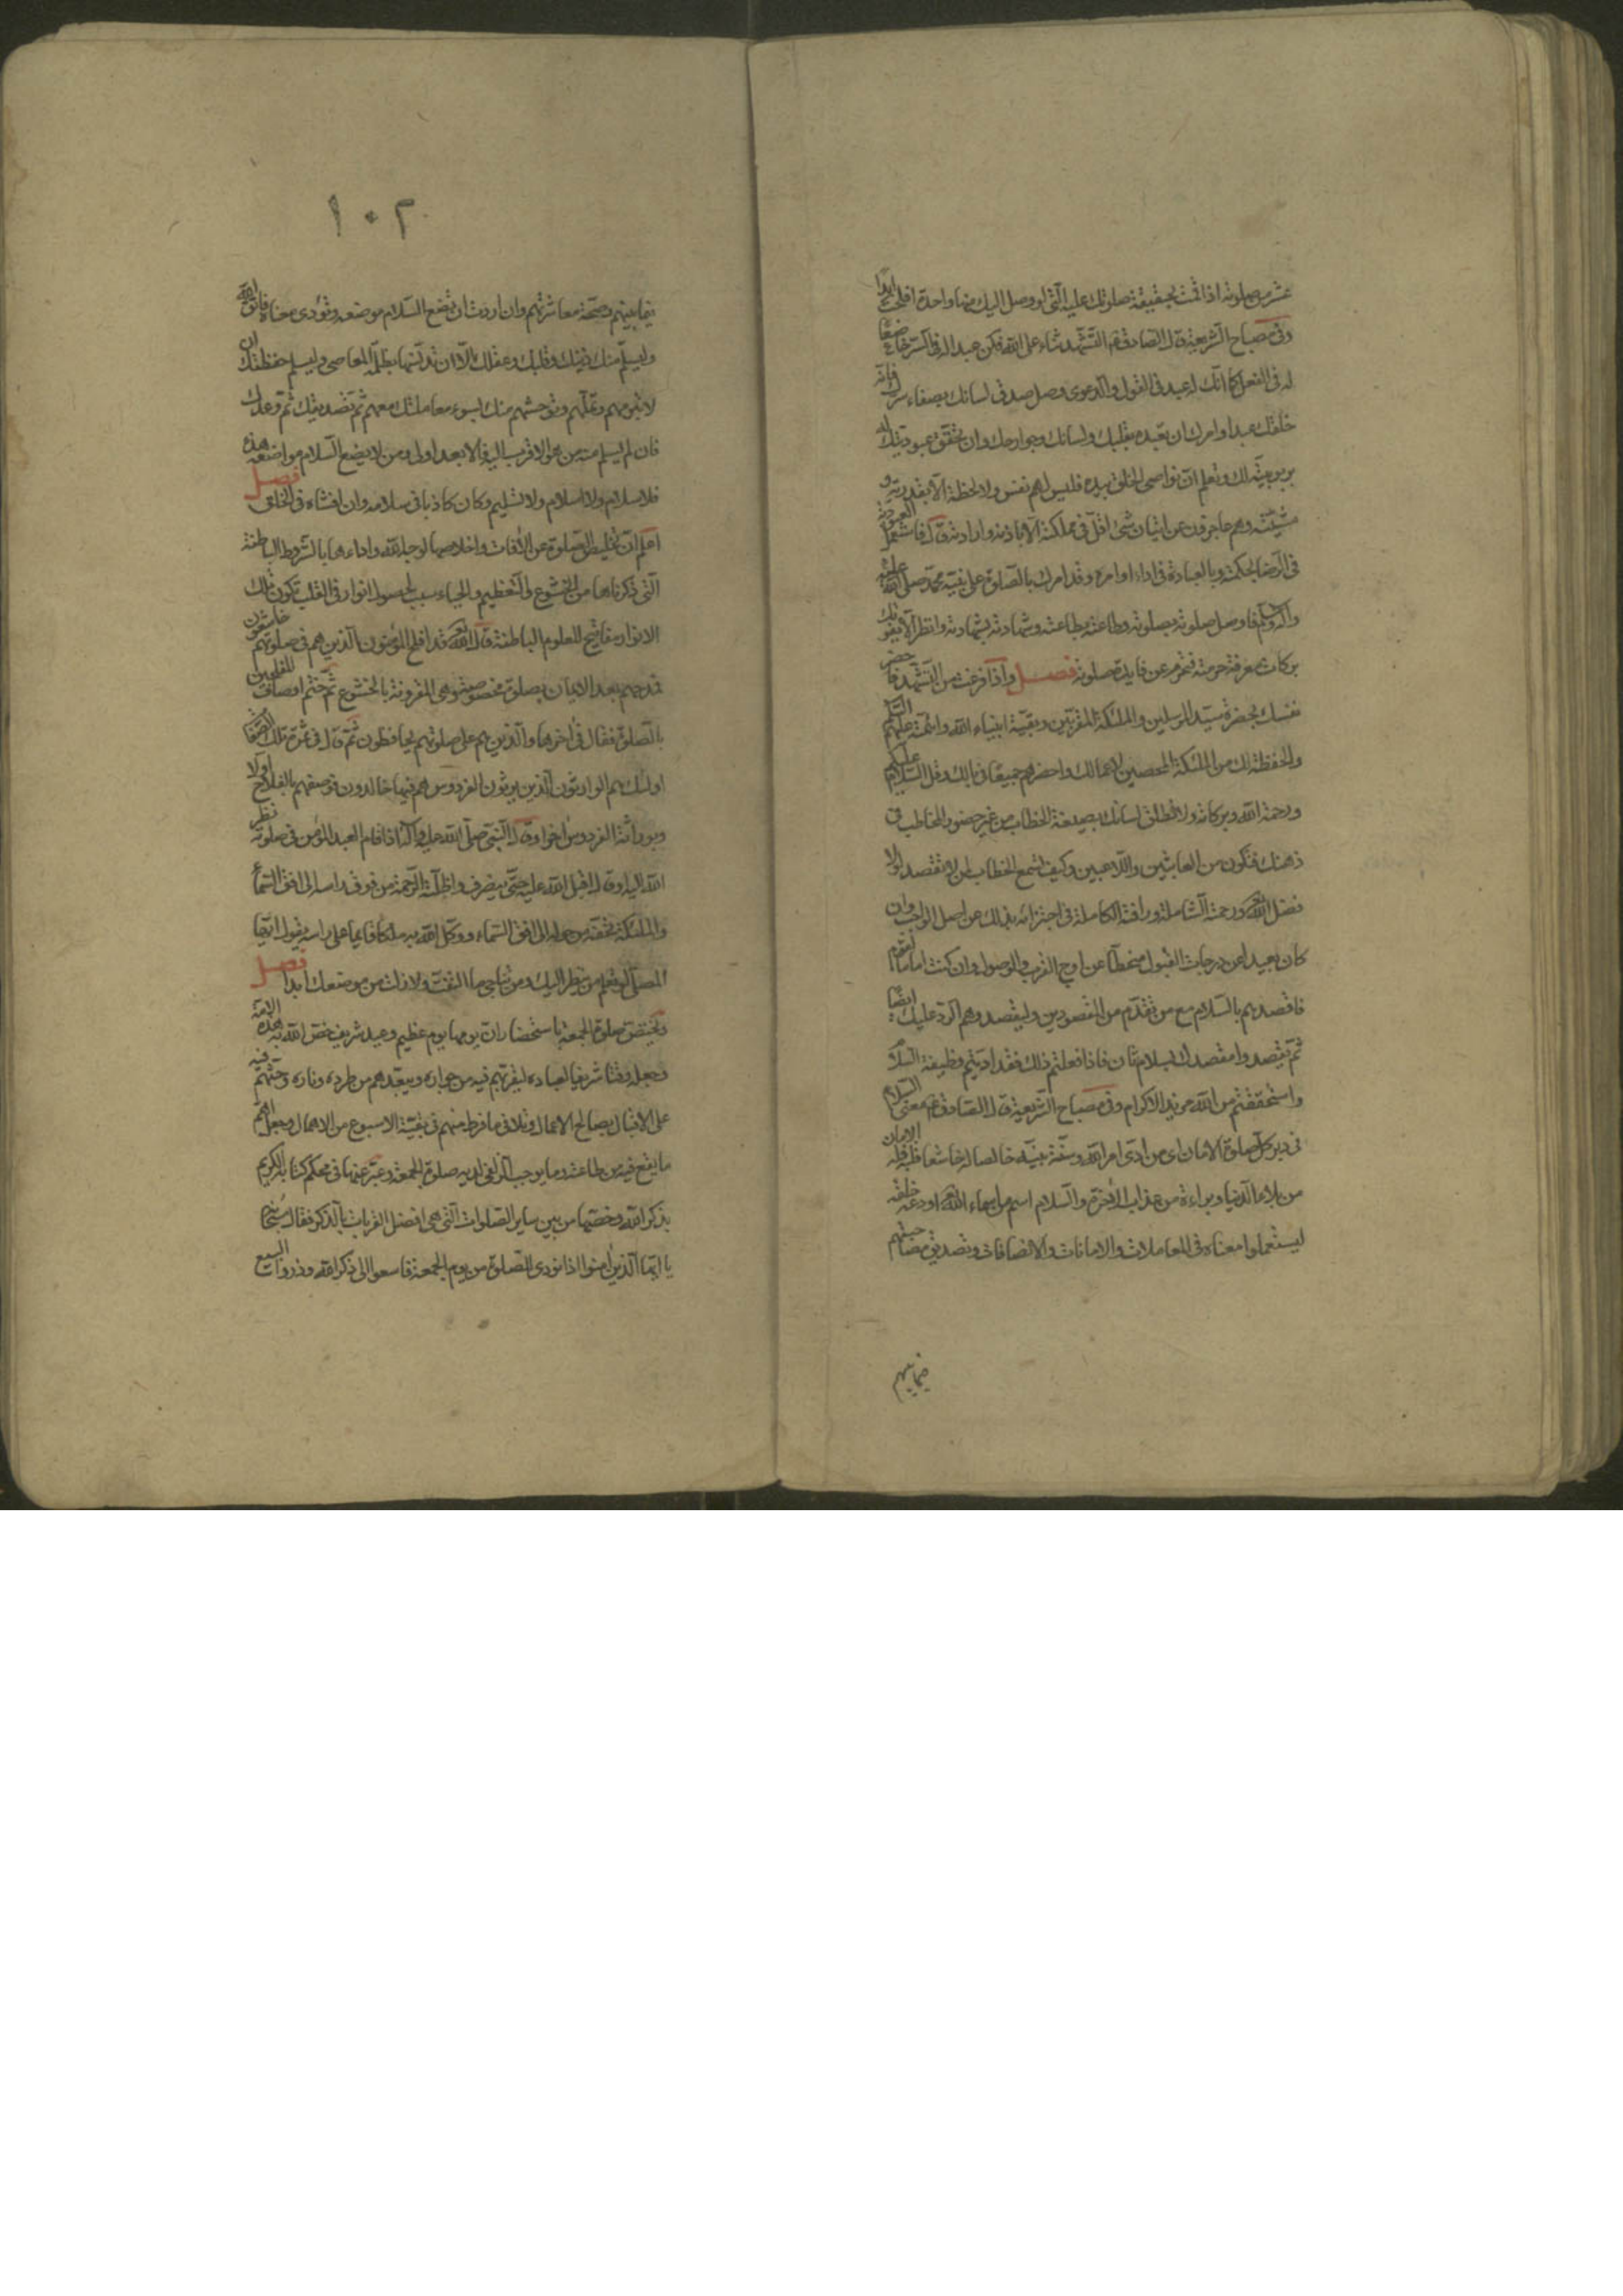 عشر من صلوته اذا قمت بحقيقة صلوتك عليه الّتى لو وصل اليك منها واحدة افلحت ابدًا
وفى مصباح الشّريعة قال الصّادق ع التّشهّد ثناء على الله فكن عبدا له فى السّرّ خاضعًا
له فى الفعل كما انّك له عبد فى القول والدّعوى وصل صدق لسانك بصفاء سرّك فإنّه
خلقك عبدا وامرك ان تعبده بقلبك ولسانك وجوارحك وان تحقّق عبوديّتك له
بربوبيّته لك وتعلم انّ نواصى الخلق بيده فليس لهم نفس ولا لحظة الّا بقدرته و
مشيّته وهم عاجزون عن اتيان شئ اقلّ فى مملكته الّا باذنه وارادته قال فاستعمل العبوديّة
فى الرّضا بحكمته وبالعبادة فى اداء اوامره وقد امرك بالصّلوة على نبيّه محمّد صلى الله عليه
وآله وسلم فاوصل صلوته بصلوته وطاعته بطاعته وشهادته بشهادته وانظر الّا يفوتك
بركات معرفة حرمته فتحرم عن فايدة صلوته فصل واذا فرغت من التّشهّد فاحضر
نفسك بحضرة سيّد المرسلين والملئكة المقرّبين وبقيّة انبياء الله وائمّته عليهم السّلام
والحفظة لك من الملئكة المحصين لاعمالك واحضرهم جميعًا فى بالك وقل السّلام عليكم
ورحمة الله وبركاته ولا تطلق لسانك بصيغة الخطاب من غير حضور المخاطب فى
ذهنك فتكون من العابثين واللّاعبين وكيف يسمع الخطاب لمن لا يقصد لولا
فضل الله تعالى ورحمته الشّاملة ورافته الكاملة فى اجتزائه بذلك عن اصل الواجب وان
كان بعيدا عن درجات القبول منحطّا عن اوج القرب والوصول وان كنت اماما لقوم
فاقصدهم بالسّلام مع من تقدّم من المقصودين وليقصدوهم الرّد عليك ايضًا
ثمّ يقصدوا مقصدك بسلام ثان فاذا فعلتم ذلك فقد ادّيتم وظيفة السّلام
واستحققتم من الله مزيد الاكرام وفى مصباح الشّريعة قال الصّادق ع معنى السّلام
فى دبر كلّ صلوة الامان اى من ادّى امر الله وسنّة نبيّه خالصا له خاشعا قلبه فله الامان
من بلاء الدّنيا وبراءة من عذاب الآخرة والسّلام اسم من اسماء الله تعالى اودعه خلقه
ليستعملوا معناه فى المعاملات والامانات والانصافات وتصديق مصاحبتهم
فيما بينهم
١٠٢
فيما بينهم وصحّة معاشرتهم وان اردت ان تضع السّلام موضعه وتؤدى معناه فاتّق الله
وليسلم منك دينك وقلبك وعقلك الّا ان تدنّسها بظلمة المعاصى وليسلم حفظتك ان
لا تبرمهم وتملّهم وتوحشهم منك بسوء معاملتك معهم ثمّ صديقك ثمّ عدوّك
فان لم يسلم منه من هو الاقرب اليه فالابعد اولى ومن لا يضع السّلام مواضعه هذه
فلا سلام ولا اسلام ولا تسليم وكان كاذبا فى سلامه وان افشاه فى الخلق فصل
اعلم انّ تخليص الصّلوة عن الآفات واخلاصها لوجه الله واداءها بالشّروط الباطنة
الّتى ذكرناها من الخشوع والتّعظيم والحياء سبب لحصول انوار فى القلب تكون تلك
الانوار مفاتيح للعلوم الباطنة قال الله تعالى قد افلح المؤمنون الّذين هم فى صلوتهم خاشعون
فمدحهم بعد الايمان بصلوة مخصوصة وهى المقرونة بالخشوع ثمّ ختم اوصاف المفلحين
بالصّلوة فقال فى آخرها والّذين هم على صلوتهم يحافظون ثمّ قال فى ثمرة تلك الصّفات
اولئك هم الوارثون الّذين يرثون الفردوس هم فيها خالدون فوصفهم بالفلاح اوّلا
وبوراثة الفردوس آخرا وقال النّبى صلّى الله عليه وآله اذا قام العبد المؤمن فى صلوته نظر
الله اليه او قال اقبل الله عليه حتّى ينصرف واظلّته الرّحمة من فوق راسه الى افق السّماء
والملئكة تحفّه من حوله الى افق السّماء ووكّل الله به ملكا قايما على راسه يقول ايّها
المصلّى لو تعلم من ينظر اليك ومن تناجى ما التفتّ ولا زلت من موضعك ابدا فصل
ويختصّ صلوة الجمعة باستحضار انّ يومها يوم عظيم وعيد شريف خصّ الله به هذه الامّة
وجعله وقتا شريفا لعباده ليقرّبهم فيه من جواره ويبعّدهم من طرده وناره وحثّهم فيه
على الاقبال بصالح الاعمال وتلافى ما فرط منهم فى بقيّة الاسبوع من الاهمال وجعل اهمّ
ما يقع فيه من طاعته وما يوجب الزّلفى لديه صلوة الجمعة وعبّر عنها فى محكم كتابه الكريم
بذكر الله وخصّها من بين ساير الصّلوات الّتى هى افضل القربات بالذّكر فقال سبحانه
يا ايّها الّذين آمنوا اذا نودى للصّلوة من يوم الجمعة فاسعوا الى ذكر الله وذروا البيع